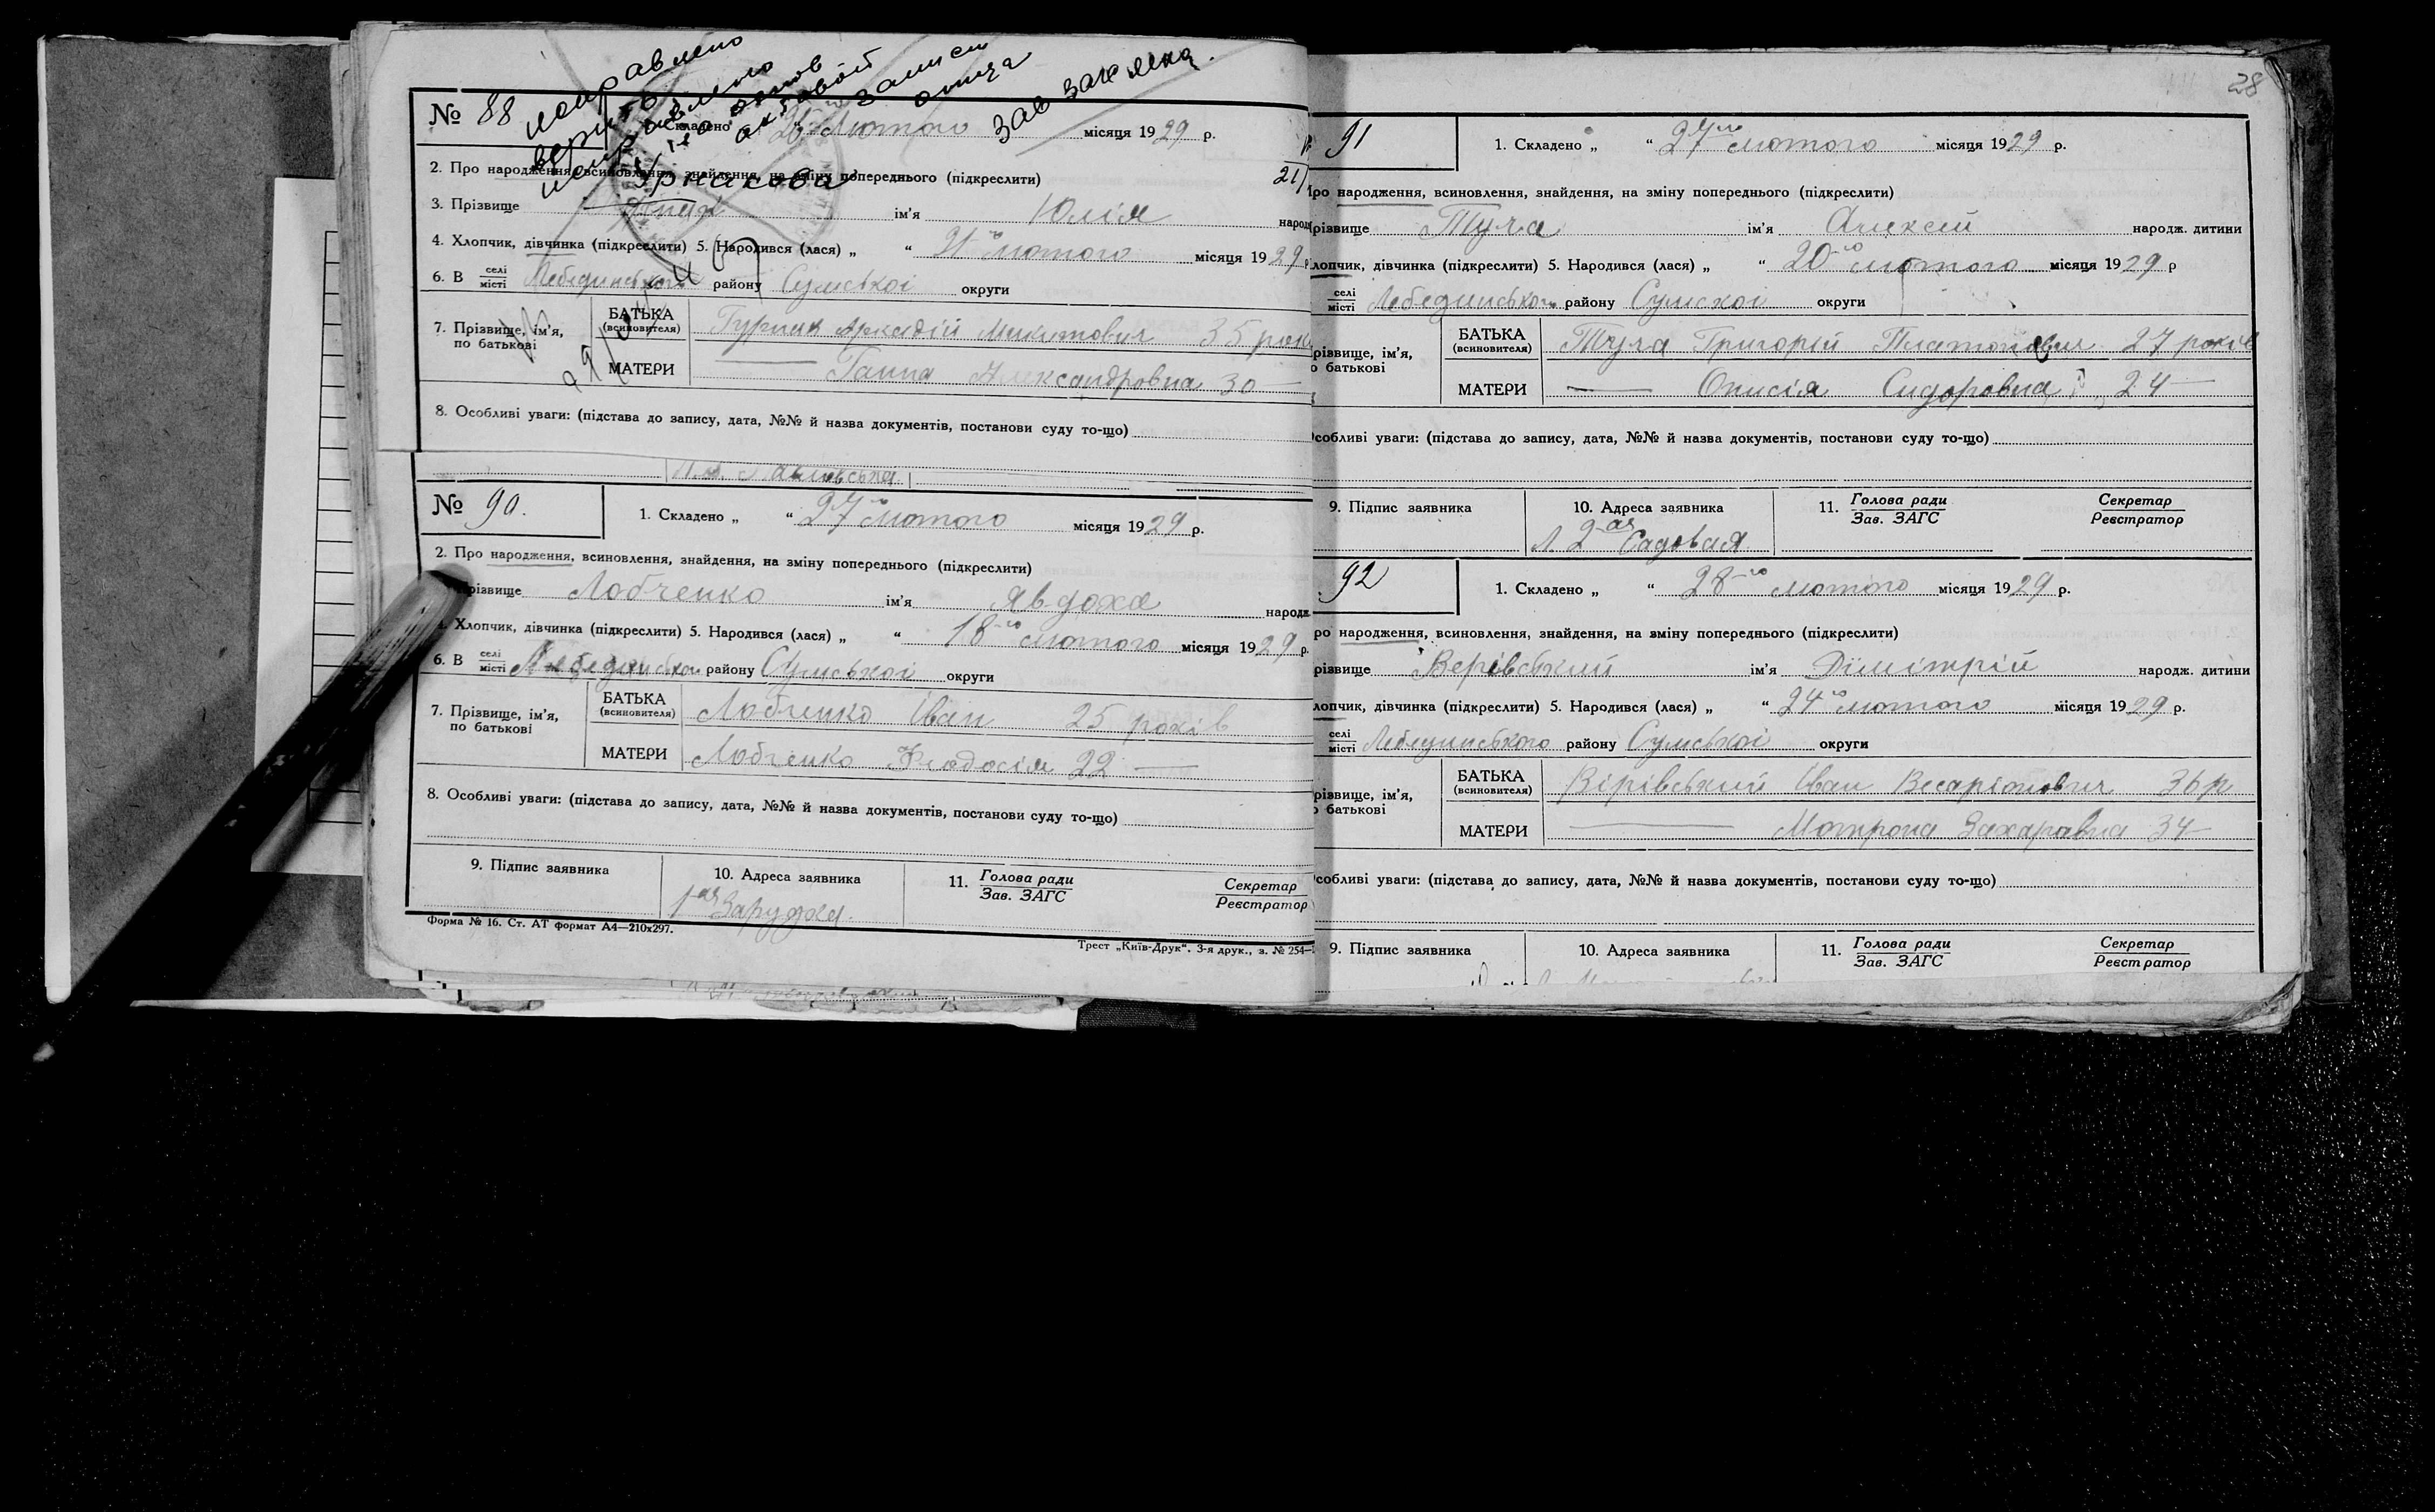 № 88
Складено „ “ 26 Лютого місяця 1929 р.
2. Про народження, всиновлення, знайдення, на зміну попереднього (підкреслити)
3. Прізвище ім'я Юлія народ
4. Хлопчик, дівчинка (підкреслити) 5. Народився (лася) „ “ 21го лютого місяця 1929 р
6. В селі місті Лебединського району Сумської округи
7. Прізвище, ім'я, по батькові
БАТЬКА (всиновителя) Аркадій Микитович 35 рок
МАТЕРИ — Ганна Александровна 30 —
8. Особливі уваги: (підстава до запису, дата, №№ й назва документів, постанови суду то-що)
№ 90.
1. Складено „ “ 27го лютого місяця 1929 р.
2. Про народження, всиновлення, знайдення, на зміну попереднього (підкреслити)
різвище Лобченко ім'я Явдоха народж
Хлопчик, дівчинка (підкреслити) 5. Народився (лася) „ “ 18го лютого місяця 1929 р.
6. В селі місті Лебединськог району Сумської округи
7. Прізвище, ім'я, по батькові
БАТЬКА (всиновителя) Лобченко Іван 25 років
МАТЕРИ Лобченко Феодосія 22 —
8. Особливі уваги: (підстава до запису, дата, №№ й назва документів, постанови суду то-що)
9. Підпис заявника 10. Адреса заявника 11. Голова ради Зав. ЗАГС Секретар Реєстратор
1ая Заруджа.
Форма № 16. Ст. АТ формат А4—210х297.
Трест „Київ-Друк“. 3-я друк., з. № 254—
28
91
1. Складено „ “ 27го лютого місяця 1929 р.
ро народження, всиновлення, знайдення, на зміну попереднього (підкреслити)
різвище Туча ім'я Алексей народж. дитини
лопчик, дівчинка (підкреслити) 5. Народився (лася) „ “ 20го лютого місяця 1929 р
селі місті Лебединського району Сумскої округи
різвище, ім'я, о батькові
БАТЬКА (всиновителя) Туча Григорій Платонович 27 років
МАТЕРИ — Онисія Сидоровна 24 —
собливі уваги: (підстава до запису, дата, №№ й назва документів, постанови суду то-що)
9. Підпис заявника 10. Адреса заявника 11. Голова ради Зав. ЗАГС Секретар Реєстратор
Л. 2ая Садовая
92
1. Складено „ “ 28го лютого місяця 1929 р.
ро народження, всиновлення, знайдення, на зміну попереднього (підкреслити)
різвище Верівський ім'я Дімітрій народж. дитини
лопчик, дівчинка (підкреслити) 5. Народився (лася) „ “ 24го лютого місяця 1929 р.
селі місті Лебединського району Сумської округи
різвище, ім'я, о батькові
БАТЬКА (всиновителя) Вірівський Іван Весаріонович 36 р
МАТЕРИ — Мотрона Захаровна 34 —
собливі уваги: (підстава до запису, дата, №№ й назва документів, постанови суду то-що)
9. Підпис заявника 10. Адреса заявника 11. Голова ради Зав. ЗАГС Секретар Реєстратор